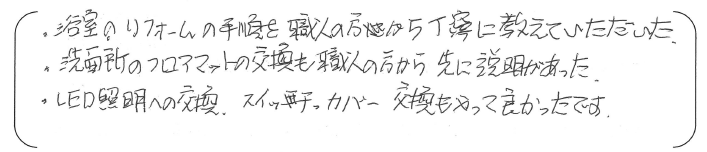 ・浴室のリフォームの手順を職人の方々から丁寧に教えていただいた.
・洗面所のフロアマットの交換も職人の方から先に説明があった.
・LED照明への交換. スイッチ カバー 交換もやって良かったです.